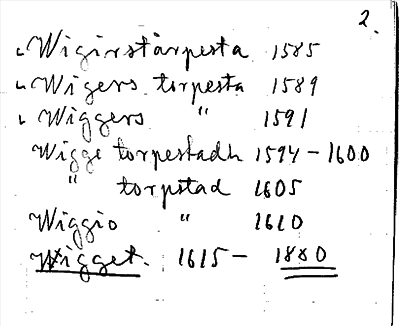 2.
Wigirstårpesta 1585
Wigers torpesta 1589
Wiggers " 1591
Wigge torpestadh 1594-1600
" torpstad 1605
Wiggio " 1610
Wigget. 1615- 1880